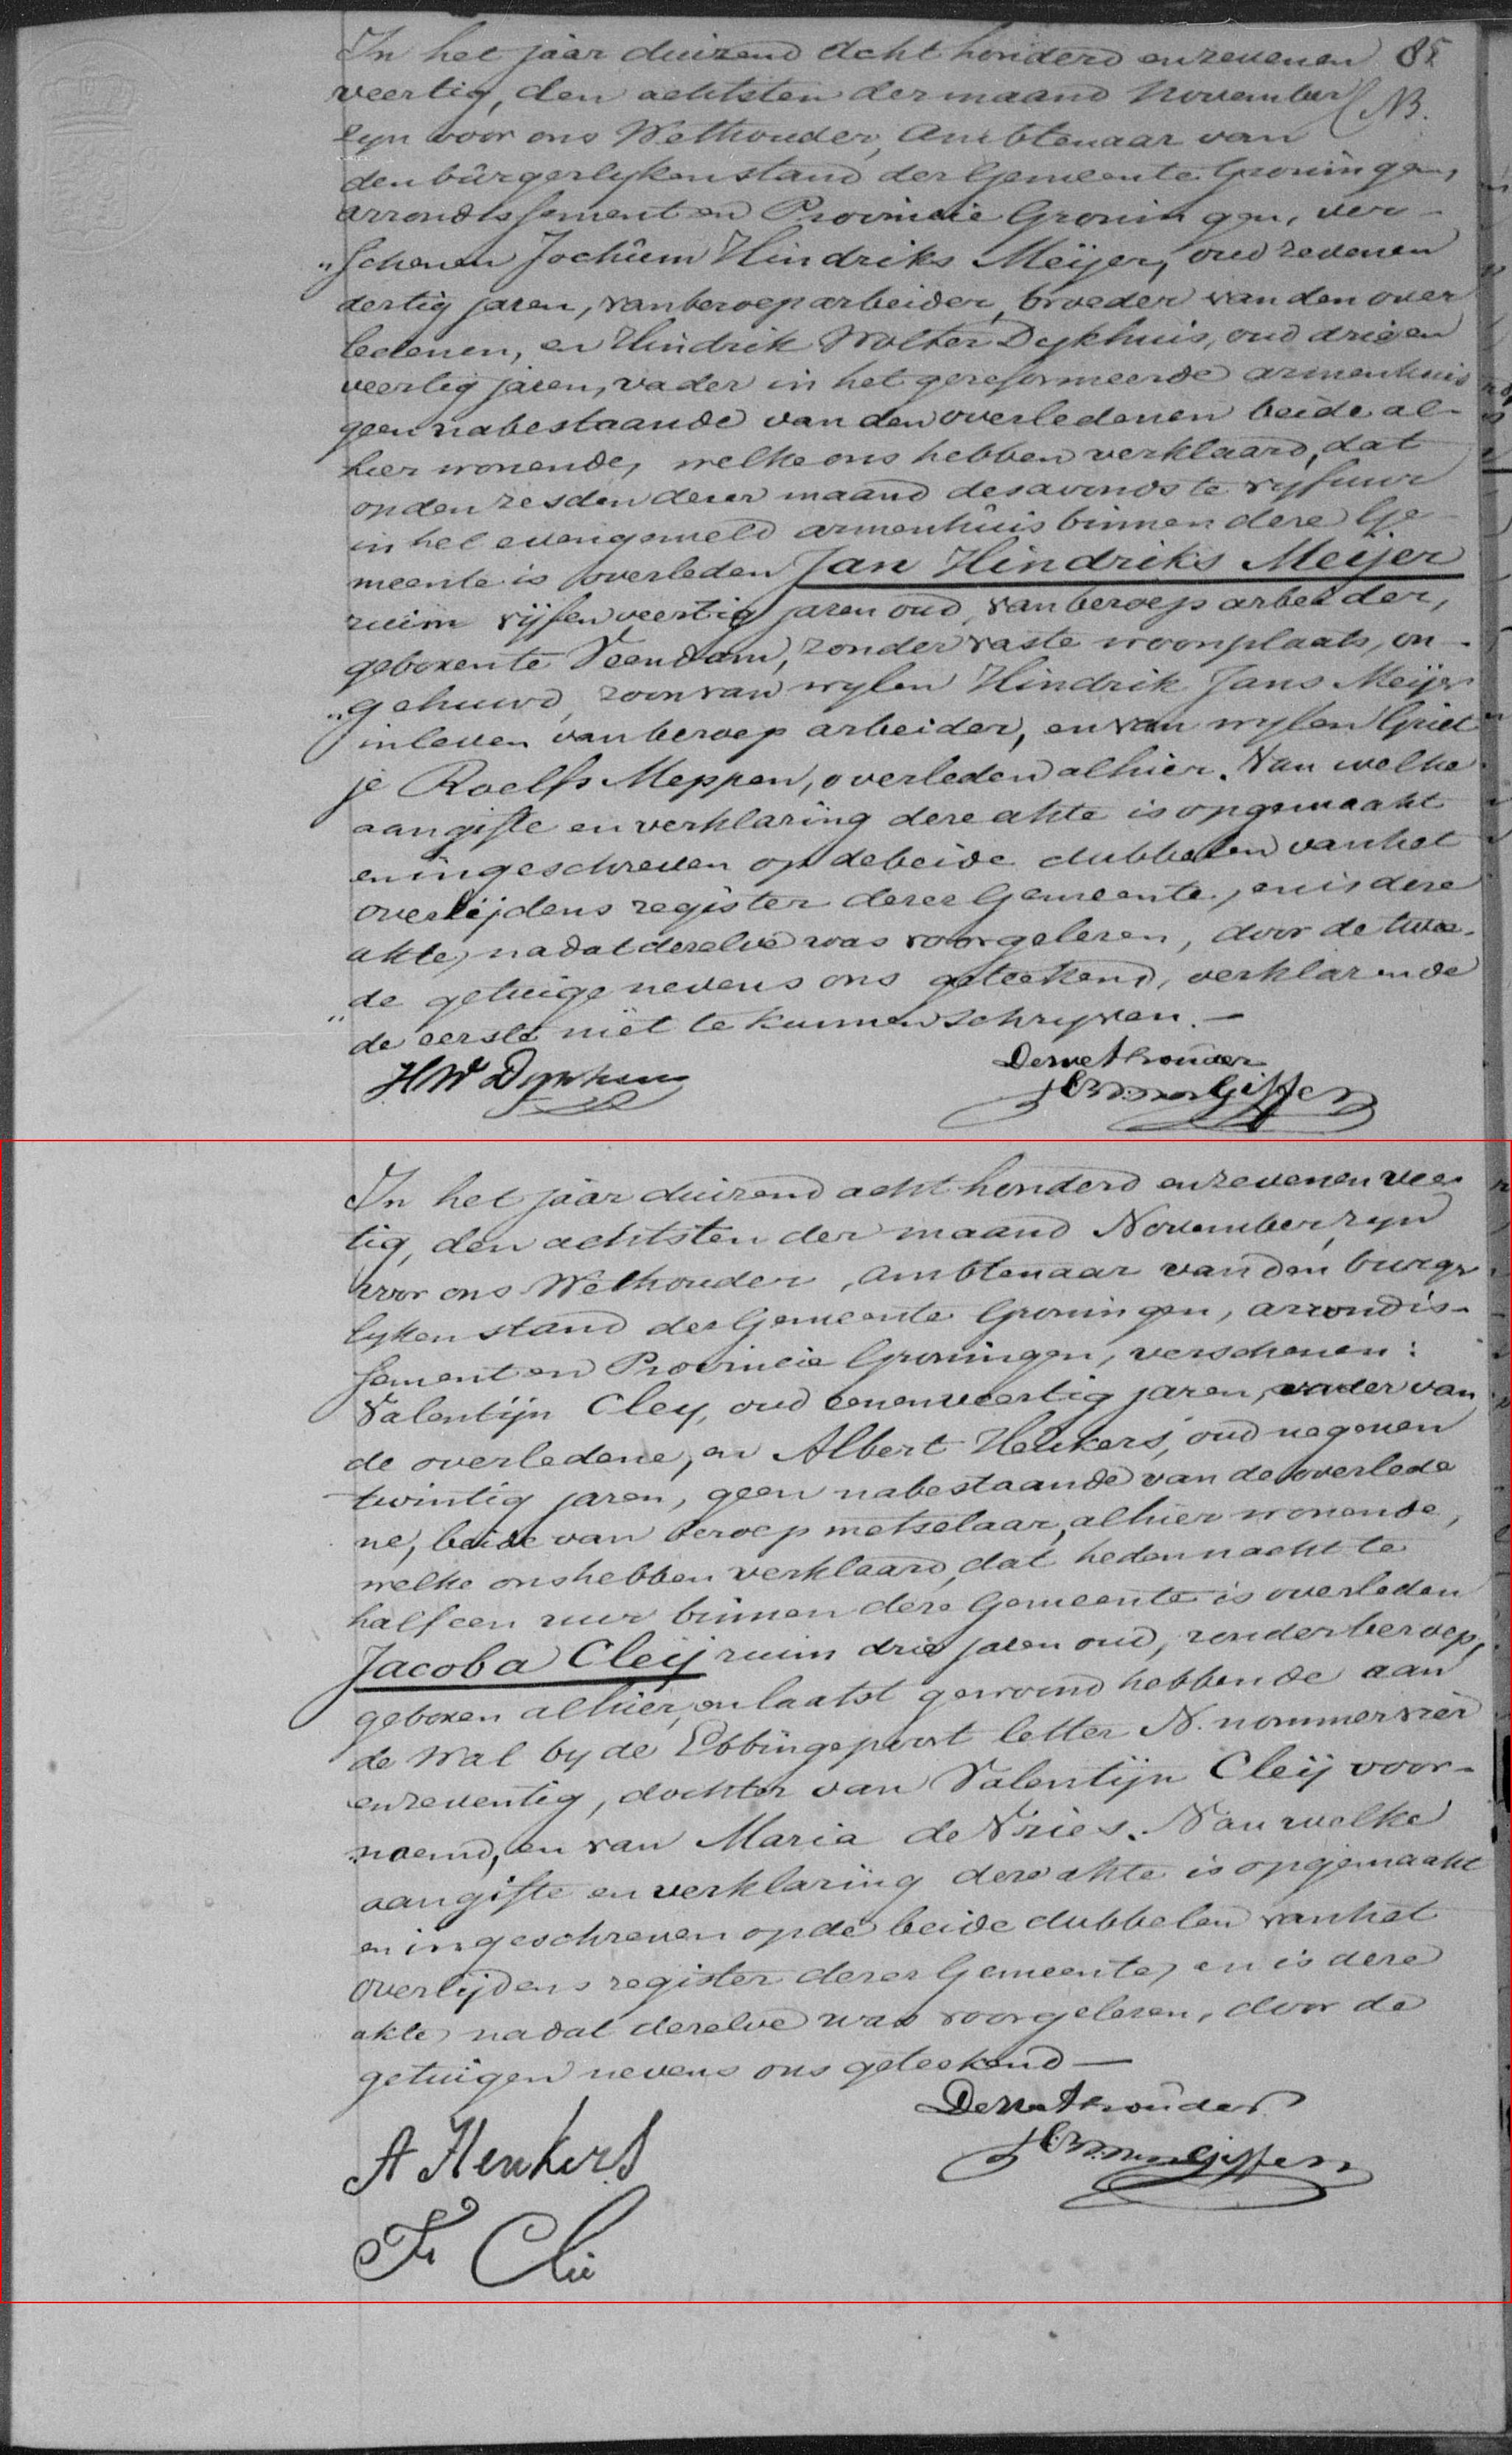 In het jaar duizend acht honderd en zeven en 85
veertig, den achtsten der maand November NB.
zyn voor ons Wethouder, Ambtenaar van
den bûrgerlyken stand der Gemeente Groningen,
arrondissement en Provincie Groningen, ver-
„schenen Jochûm Hindriks Meijer, oud zeven en
dertig jaren, van beroep arbeider, broeder van den over
ledenen, en Hindrik Wolter Dykhuis, oud drie en
veertig jaren, vader in het gereformeerde armenhuis
geen nabestaande van den overledenen beide al-
hier wonende, welke ons hebben verklaard, dat
op den zesden dezer maand des avonds te vyf uur
in het evengemeld armenhûis binnen deze Ge-
meente is overleden Jan Hindriks Meijer
ruim vijf en veertig jaren oud, van beroep arbeider,
geboren te Veendam, zonder vaste woonplaats, on-
„gehuwd, zoon van wylen Hindrik Jans Meijer
in leven van beroep arbeider, en van wylen Griet
je Roelfs Meppen, overleden alhier. Van welke
aangifte en verklaring deze akte is opgemaakt
en ingeschreven op de beide dubbelen van het
overlijdens register dezer Gemeente, en is deze
akte, nadat dezelve was voorgelezen, door de twee-
„de getuige nevens ons geteekend, verklarende
de eerste niet te kunnen schryven. —
HW Dykhuis De wethouder
In het jaar duizend acht honderd en zeven en veer
tig, den achtsten der maand November, zyn
voor ons Wethouder, Ambtenaar van den burger
lyken stand der Gemeente Groningen, arrondis-
sement en Provincie Groningen, verschenen:
Valentijn Cley, oud een en veertig jaren, vader van
de overledene, en Albert Henkers, oud negen en
twintig jaren, geen nabestaande van de overlede
ne, beide van beroep metselaar, alhier wonende,
welke ons hebben verklaard, dat heden nacht te
half een uur binnen deze Gemeente is overleden
Jacoba Cleij ruim drie jaren oud, zonder beroep,
geboren alhier, en laatst gewoond hebbende aan
de Wal by de Ebbingepoort letter N. nommer vier
en zeventig, dochter van Valentijn Cleij voor-
„noemd, en van Maria de Vries. Van welke
aangifte en verklaring deze akte is opgemaakt
en ingeschreven op de beide dubbelen van het
overlijdens register dezer Gemeente, en is deze
akte, nadat dezelve was voorgelezen, door de
getuigen nevens ons geteekend —
De wethouder
A Henkers